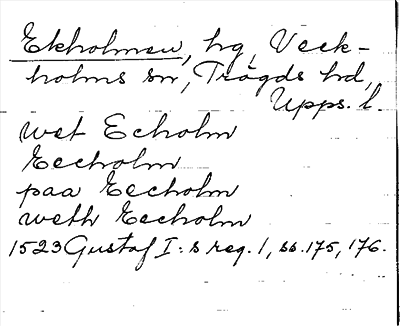 Ekholmen, hg, Veck-
holms sn, Trögds hd,
Upps. l.
wet Echolm
Eecholm
paa Eecholm
weth Eecholm
1523 Gustaf I:s reg. 1, ss. 175, 176.